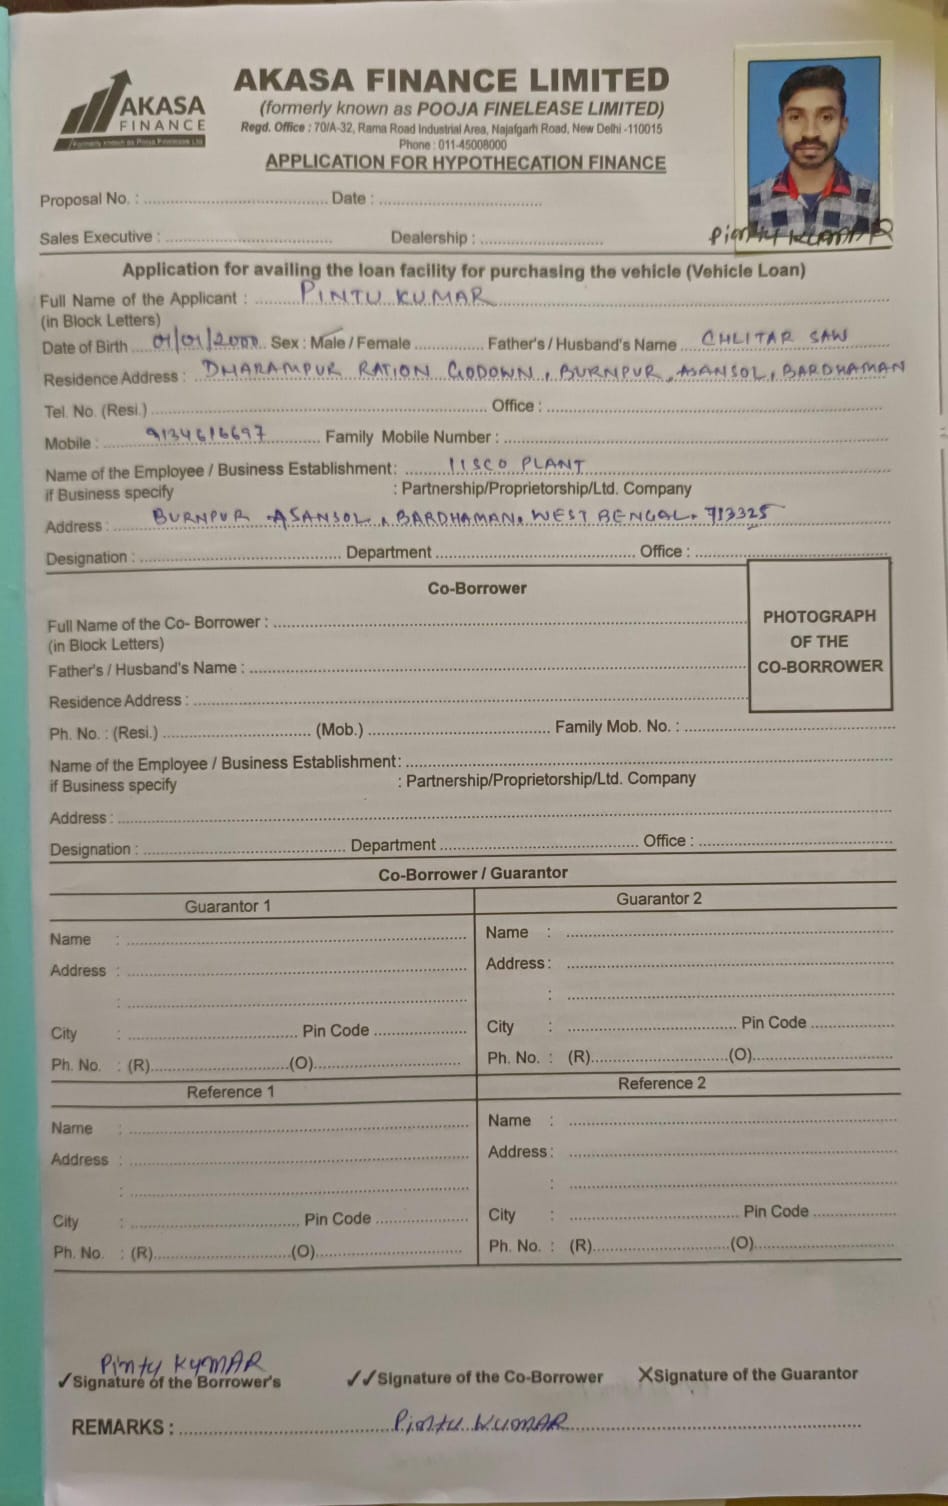 AKASA
FINANCE
(Formerly known as Pooja Finelease Ltd)
AKASA FINANCE LIMITED
(formerly known as POOJA FINELEASE LIMITED)
Regd. Office : 70/A-32, Rama Road Industrial Area, Najafgarh Road, New Delhi -110015
Phone : 011-45008000
APPLICATION FOR HYPOTHECATION FINANCE
Proposal No. : Date :
Sales Executive : Dealership :
Pintu KUMAR
Application for availing the loan facility for purchasing the vehicle (Vehicle Loan)
Full Name of the Applicant : PINTU KUMAR
(in Block Letters)
Date of Birth 01/01/2000 Sex : Male / Female Father's / Husband's Name CHLITAR SAW
Residence Address : DHARAMPUR RATION GODOWN, BURNPUR, ASANSOL, BARDHAMAN
Tel. No. (Resi.) Office :
Mobile : 9134616697 Family Mobile Number :
Name of the Employee / Business Establishment : IISCO PLANT
if Business specify : Partnership/Proprietorship/Ltd. Company
Address : BURNPUR ASANSOL, BARDHAMAN, WEST BENGAL. 713325
Designation : Department Office :
Co-Borrower
Full Name of the Co- Borrower :
(in Block Letters)
Father's / Husband's Name :
Residence Address :
PHOTOGRAPH
OF THE
CO-BORROWER
Ph. No. : (Resi.) (Mob.) Family Mob. No. :
Name of the Employee / Business Establishment :
if Business specify : Partnership/Proprietorship/Ltd. Company
Address :
Designation : Department Office :
Co-Borrower / Guarantor
Guarantor 1
Name :
Address :
:
City : Pin Code
Ph. No. : (R) (O)
Guarantor 2
Name :
Address :
:
City : Pin Code
Ph. No. : (R) (O)
Reference 1
Name :
Address :
:
City : Pin Code
Ph. No. : (R) (O)
Reference 2
Name :
Address :
:
City : Pin Code
Ph. No. : (R) (O)
Pintu KUMAR
✓Signature of the Borrower's ✓✓Signature of the Co-Borrower ✗Signature of the Guarantor
REMARKS : Pintu KUMAR